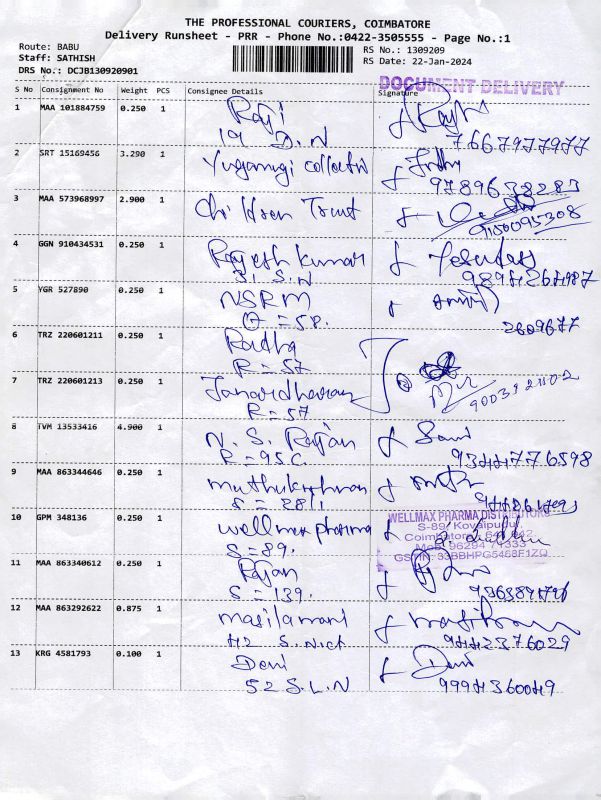 THE PROFESSIONAL COURIERS, COIMBATORE
Delivery Runsheet - PRR - Phone No.:0422-3505555 - Page No.:1
Route: BABU
Staff: SATHISH
DRS No.: DCJB130920901
RS No.: 1309209
RS Date: 22-Jan-2024
DOCUMENT DELIVERY
S No Consignment No Weight PCS Consignee Details Signature
1 MAA 101884759 0.250 1 Raji
19 D.N 7667977977
2 SRT 15169456 3.290 1
9789638283
3 MAA 573968997 2.900 1 Trust
9150095308
4 GGN 910434531 0.250 1 Rajesh Kumar Yesudas
S.S.N
5 YGR 527890 0.250 1 NSRM
O = 58. 2609677
6 TRZ 220601211 0.250 1 Radha
R = 57
7 TRZ 220601213 0.250 1 Janardhanan
R = 57
8 TVM 13533416 4.900 1 N. S. Rajan
R = 95C. 9344776598
9 MAA 863344646 0.250 1 muthukrishnan
S = 281,
10 GPM 348136 0.250 1 wellmax pharma
S = 89.
WELLMAX PHARMA DISTRIBUTORS
S-89, Kovaipudur,
Coimbatore
GSTIN: 33BBHPG5468F1ZQ
11 MAA 863340612 0.250 1 Rajan
S = 139.
12 MAA 863292622 0.875 1 masilamani
H2 9442376029
13 KRG 4581793 0.100 1 Devi Devi
52 S.L.N 9994360049